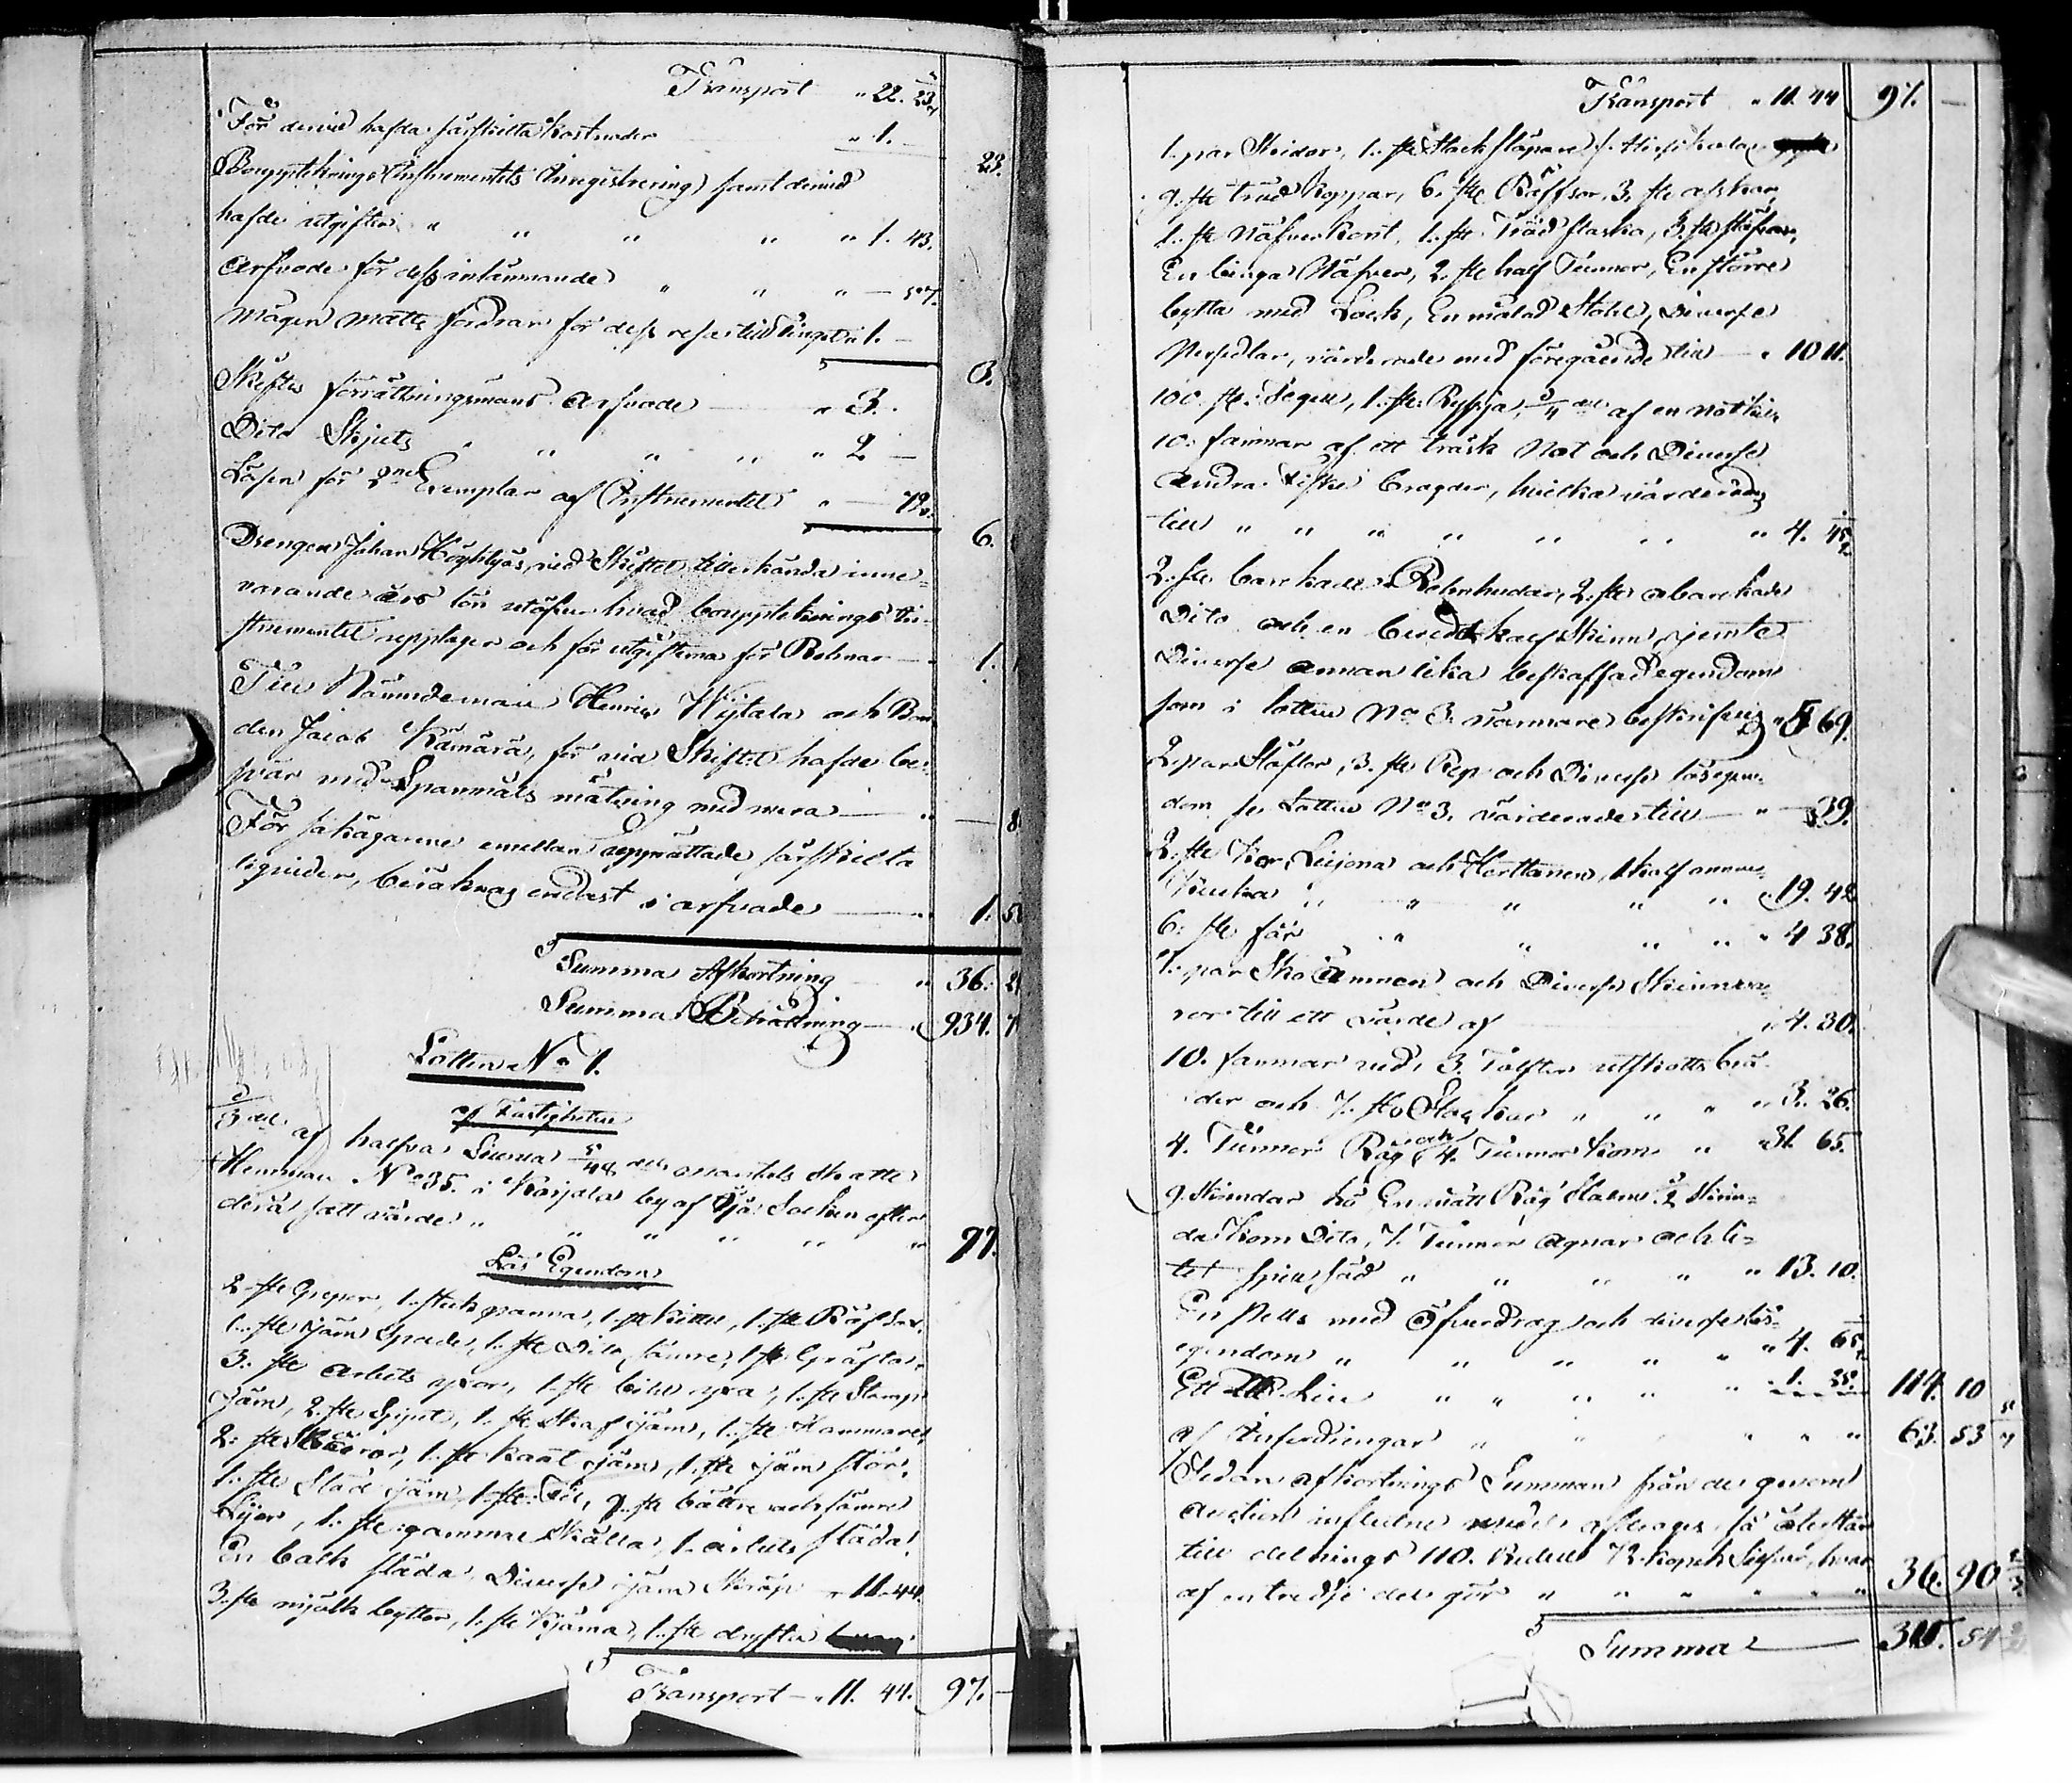 Transport " 22. 23
För dervid hafda särskilta kostnader " 1. — 23.
Bouppteknings Instrumentets Inregistrering samt dervid
hafde utgifter " " " " " 1. 43.
Arfvode för dess inlämnande " " " — 57.
Mågen Matts fordran för dess resa till Tinget " 1. —
3.
Skiftes förrättningsmans Arfvode — " 3. —
Dito Skjuts " " " " 2 —
Lösen för 2ne Exemplar af Instrumentet " — 79.
6.
Drengen Johan vid Skiftet tillerkända inne-
varande års lön utöfver hvad bouppteknings In-
strumentet upptager och för utgifterna för Rehnar — 1.
Till Nämndeman Henric Wijtala och Bon-
den Jacob Kämärä, för vid Skiftet hafde be-
svär med Spannmåls mätning med mera — " — 8
För sakägarene emellan upprättade särskilta
liqvider, beräknas endast i arfvode — " 1. 5
Summa Afkortning " 36. 2
Summa Behållning — " 934. 7
Lotten No 1.
af Fastigheten
1/3 del af halfva Siuma 5/48 dels mantals Skatte
Hemman No 35. i Karjala by af Sochen efter
derå satt värde " " " " " " 97.
Lös Egendom
2. st. Greper, 1. stekpanna, 1. st. Kittel, 1. st.
1. st. Järn Spade, 1. st. Dito sämre, 1. st. Gräfta,
3. st. Arbets yxor, 1. st. bihl yxa, 1. st. Stamp
Järn, 2. st. Spjut, 1. st. Skaf järn, 1. st. Hammare,
2. st. Skäror, 1. st. kant järn, 1. st. järn stör,
1. st. Städ järn, 1. st. Fil, 2. st. bättre och sämre
Lijor, 1. st. gammal Skälla, 1. arbets släda,
En balk släda, Diverse järn Skräp " 11. 44.
3. st. mjölk byttor, 1. st. Kjärna, 1. st. dryfta
Transport — " 11. 44. 97. —
Transport " 11. 44 97. —
1. par Skidor, 1. st. Stock släpare
9. st. träd Koppar, 6. st. Räffsor, 3. st. askar,
1. st. Näfver Kont, 1. st. Träd flaska, 3. st.
En binga Näfver, 2. st. half Tunnor, En större
bytta med Lock, En målad Stohl, Diverse
Persedlar, värderade med föregående till — " 10 11.
100. st. Segel, 1. st. Ryssja, 3/4 del af en not
10. famnar af ett träsk Not och Diverse
Andra Fiske bragder, hvilka värderades
till " " " " " " " 4. 45
2. st. barkade Rehnhudar, 2. st. obarkade
Dito och en beredd kalf Skinn jemte
Diverse annan lika beskaffad egendom
som i lotten No 3. närmare beskrifves " 5 69.
2. par Stöflor, 3. st. Rep och Diverse lösegen-
dom se Lotten No 3. värderade till — " — 39.
2. st. Kor, Liljona och Herttanen, 1. kalf
" " " " " 19. 42
6. st. får " " " " " 4 38.
1. par Sko ämnen och Diverse Skinnva-
ror till ett värde af " 4. 30.
10. famnar ved, 3. Tolfter utskotts brä-
der och 7. st. Stockar " " " " 3. 26.
4. Tunnor Råg och 4. Tunnor Korn " " 31. 65.
9. Skrindar hö, En mått Råg Halm, 2 Skrin-
da Korn Dito, 7. Tunnor Agnar och li-
tet spill säd " " " " " 13. 10.
En Pells med Öfverdrag och diverse lös-
egendom " " " " " " 4. 65
Ett Lin " " " " " 1. 25. 114. 10 "
af Infordringar " " " " " " 63. 53 "
Sedan afkortnings Summan från de genom
Auction influtne afdrages, så återstår
till delnings 110. Rubel 72. kopek Silfver, hvar
af en tredje del gör " " " " " 36. 90 2/3
Summa — 311. 54